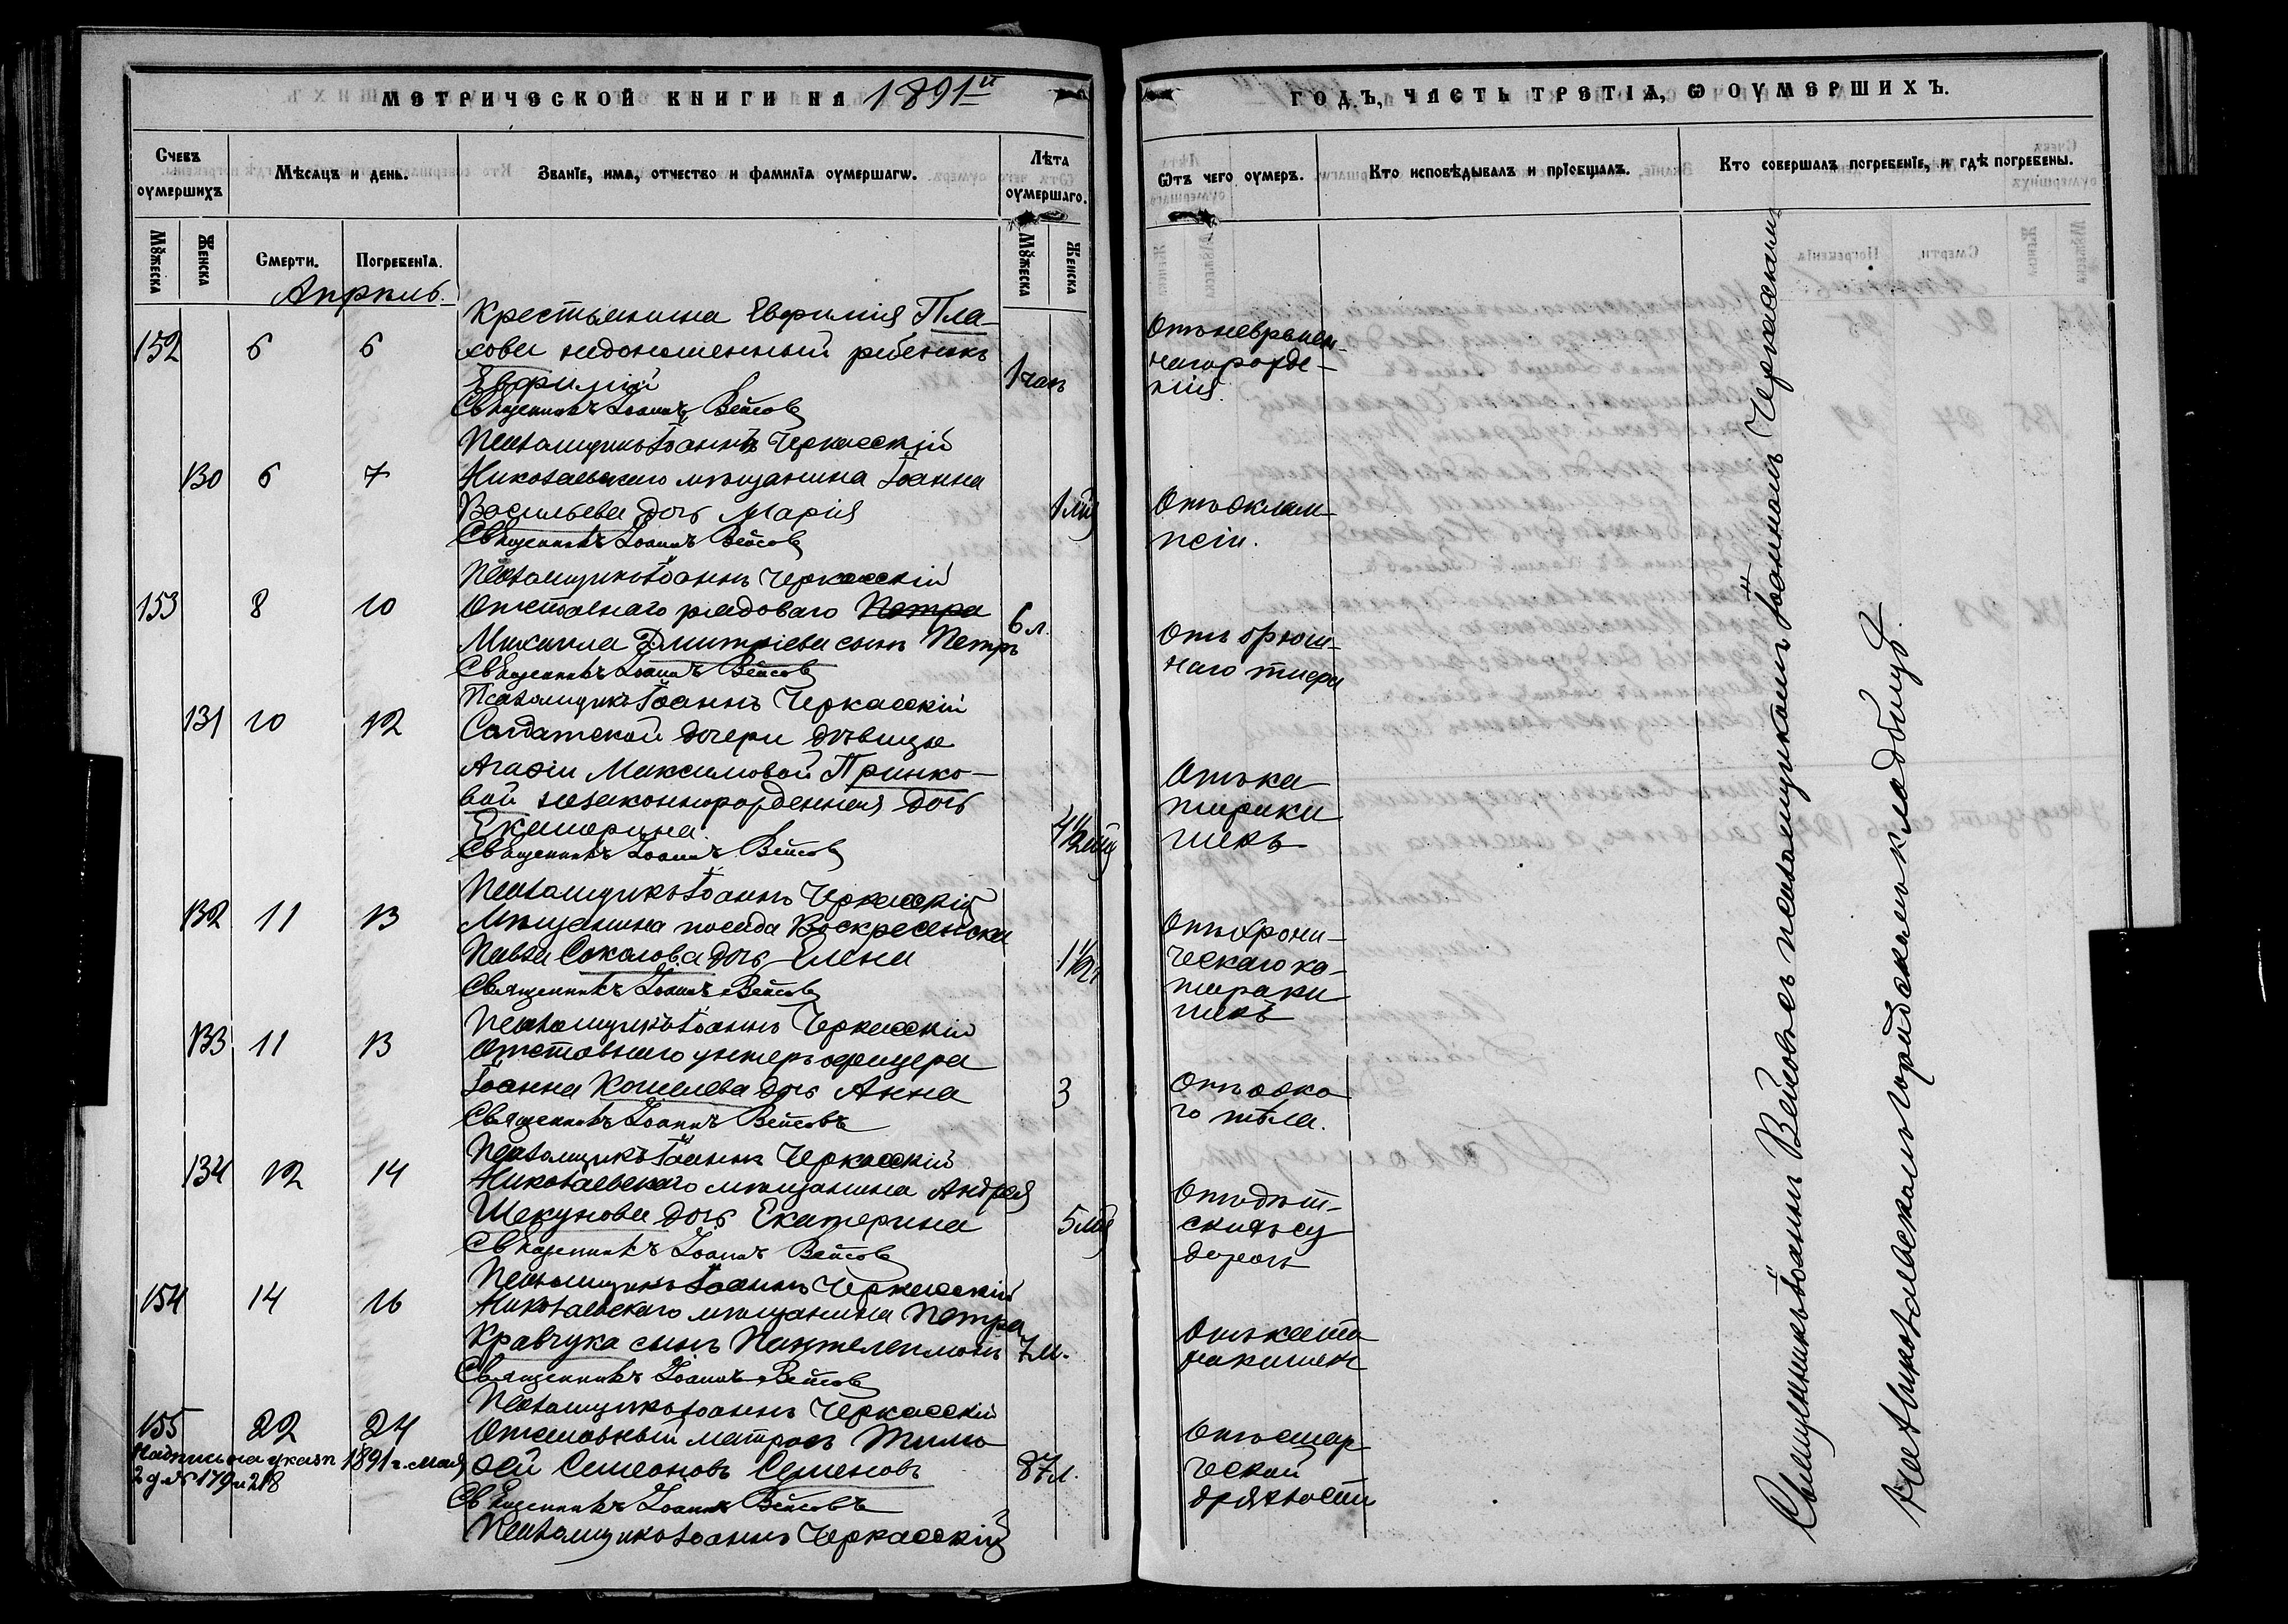 МЕТРИЧЕСКОЙ КНИГИ НА 1891й
ГОДЪ, ЧАСТЬ ТРЕТІЯ, Ѡ ОУМЕРШИХЪ.
Счетъ оумершихъ
Мѣсяцъ и день.
Званіе, имя, отчество и фамилія оумершагw.
Лѣта оумершаго.
Ѿтъ чего оумеръ.
Кто исповѣдывалъ и пріобщалъ.
Кто совершалъ погребеніе, и гдѣ погребены.
Мꙋжеска
Женска
Смерти.
Погребенія.
Мꙋжеска
Женска
Апрѣль.
Крестьянина Евфимія Пла-
152 6 6 хова недоношенный ребенокъ
Евфимій 1 часъ
Отъ невремен-
наго рожде-
нія.
Священникъ Іоаннъ Вейсовъ
Псаломщикъ Іоаннъ Черкасскій
130 6 7 Николаевскаго мѣщанина Іоанна
Васильева дочь Марія
Отъ эклам-
псіи.
Священникъ Іоаннъ Вейсовъ
Псаломщикъ Іоаннъ Черкасскій
153 8 10 Отставнаго рядоваго Петра
Михаила Дмитріева сынъ Петръ 6 л.
Отъ брюш-
наго тифа
Священникъ Іоаннъ Вейсовъ
Псаломщикъ Іоаннъ Черкасскій
131 10 12 Солдатской дочери дѣвицы
Агафіи Максимовой Принко-
вой незаконнорожденная дочь
Екатерина
Отъ ка
тара ки
шекъ
Священникъ Іоаннъ Вейсовъ
Псаломщикъ Іоаннъ Черкасскій
132 11 13 Мѣщанина посада Воскресенска
Павла Соколова дочь Елена
Отъ хрони-
ческаго ка-
тара ки
шекъ
Священникъ Іоаннъ Вейсовъ
Псаломщикъ Іоаннъ Черкасскій
133 11 13 Отставнаго унтеръ офицера
Іоанна Кошелева дочь Анна 3
Священникъ Іоаннъ Вейсовъ
Псаломщикъ Іоаннъ Черкасскій
134 12 14 Николаевскаго мѣщанина Андрея
Шекунова дочь Екатерина
Отъ дѣт-
скихъ су
дорогъ
Священникъ Іоаннъ Вейсовъ
Псаломщикъ Іоаннъ Черкасскій
154 14 16 Николаевскаго мѣщанина Петра
Кравчука сынъ Пантелеимонъ 7 м.
Отъ ката
ра кишекъ
Священникъ Іоаннъ Вейсовъ
Псаломщикъ Іоаннъ Черкасскій
155 22 24 Отставный матросъ Тимо
фей Семеоновъ Семеновъ 87 л.
Отъ стар
ческой
дряхлости
Надпись на указѣ 1891 г. мая
2 д № 179 и 218
Священникъ Іоаннъ Вейсовъ
Псаломщикъ Іоаннъ Черкасскій
Священникъ Іоаннъ Вейсовъ съ псаломщикомъ Іоанномъ Черкасскимъ
На Николаевскомъ городскомъ кладбищѣ.